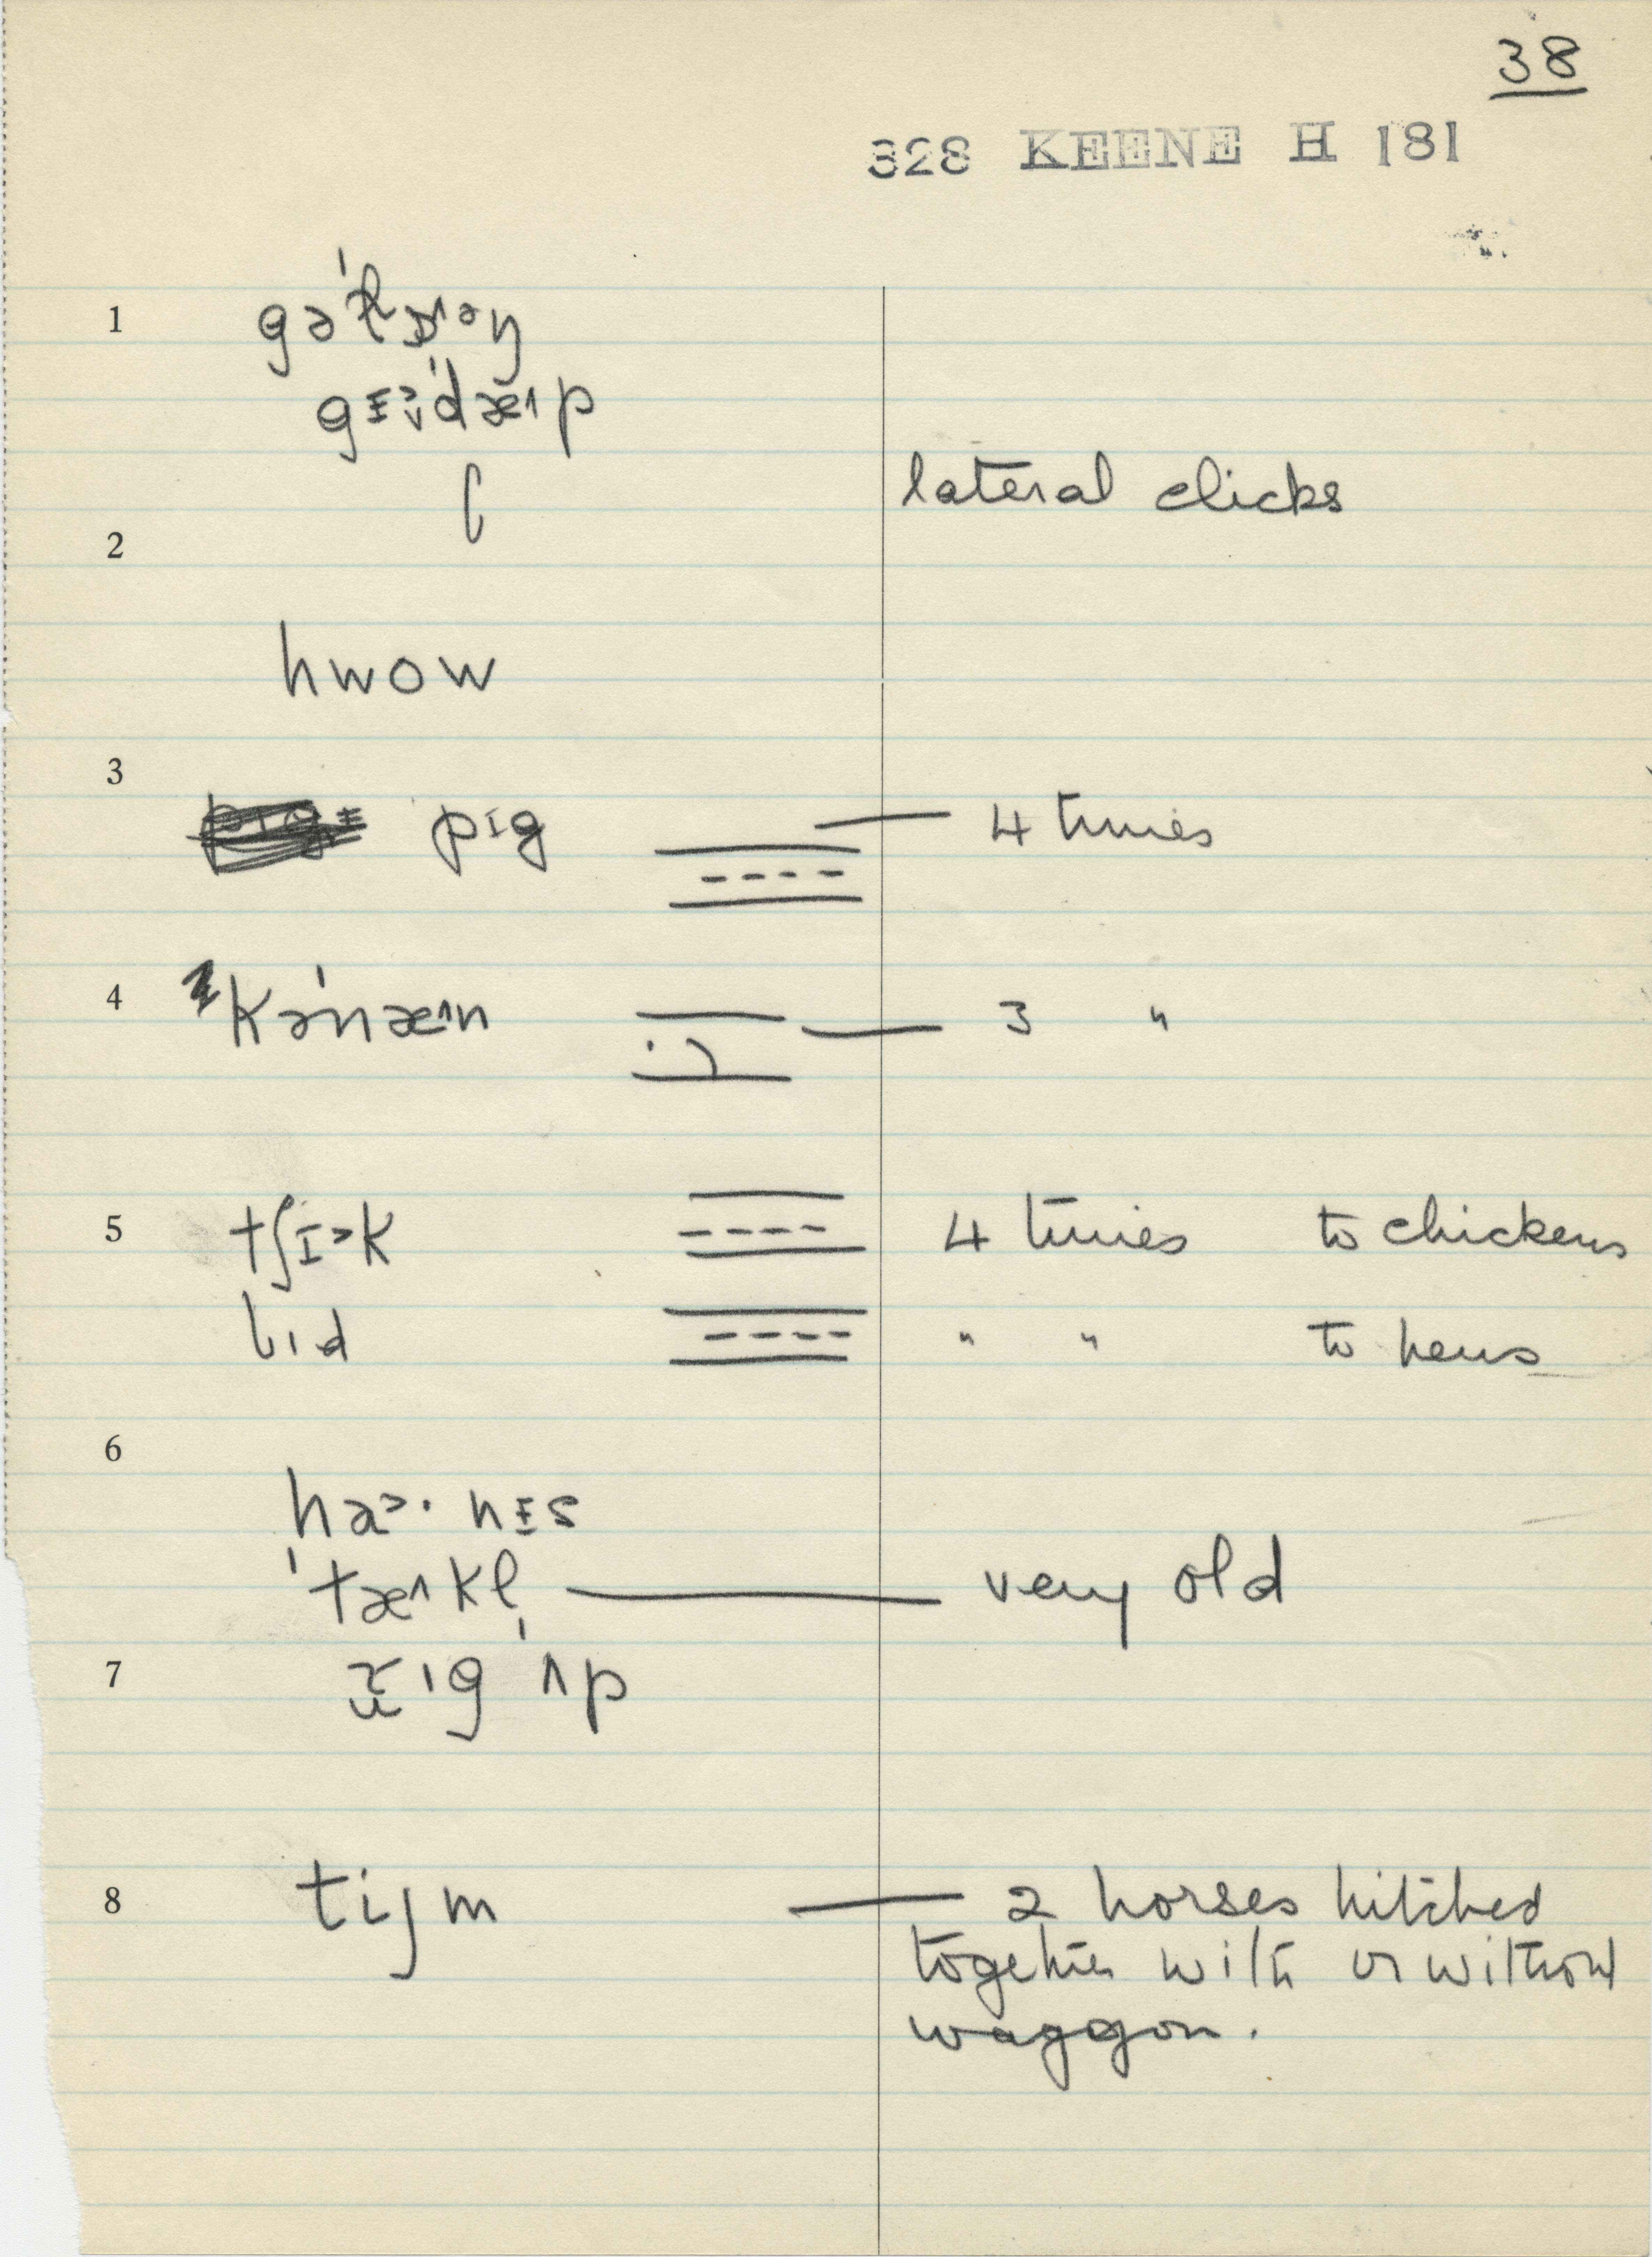 38
328 KEENE H 181
1
gᵻ˃ˈdæ˄p
lateral clicks
2
hwow
3
pɪg — 4 times
4 kəˈnæ˄n — 3 "
5 tʃɪ˃k 4 times to chickens
" " to hens
6
ha˃· nᵻs
ˈtæ˄kl̩ — very old
7
8 tijm — 2 horses hitched
together with or without
waggon.